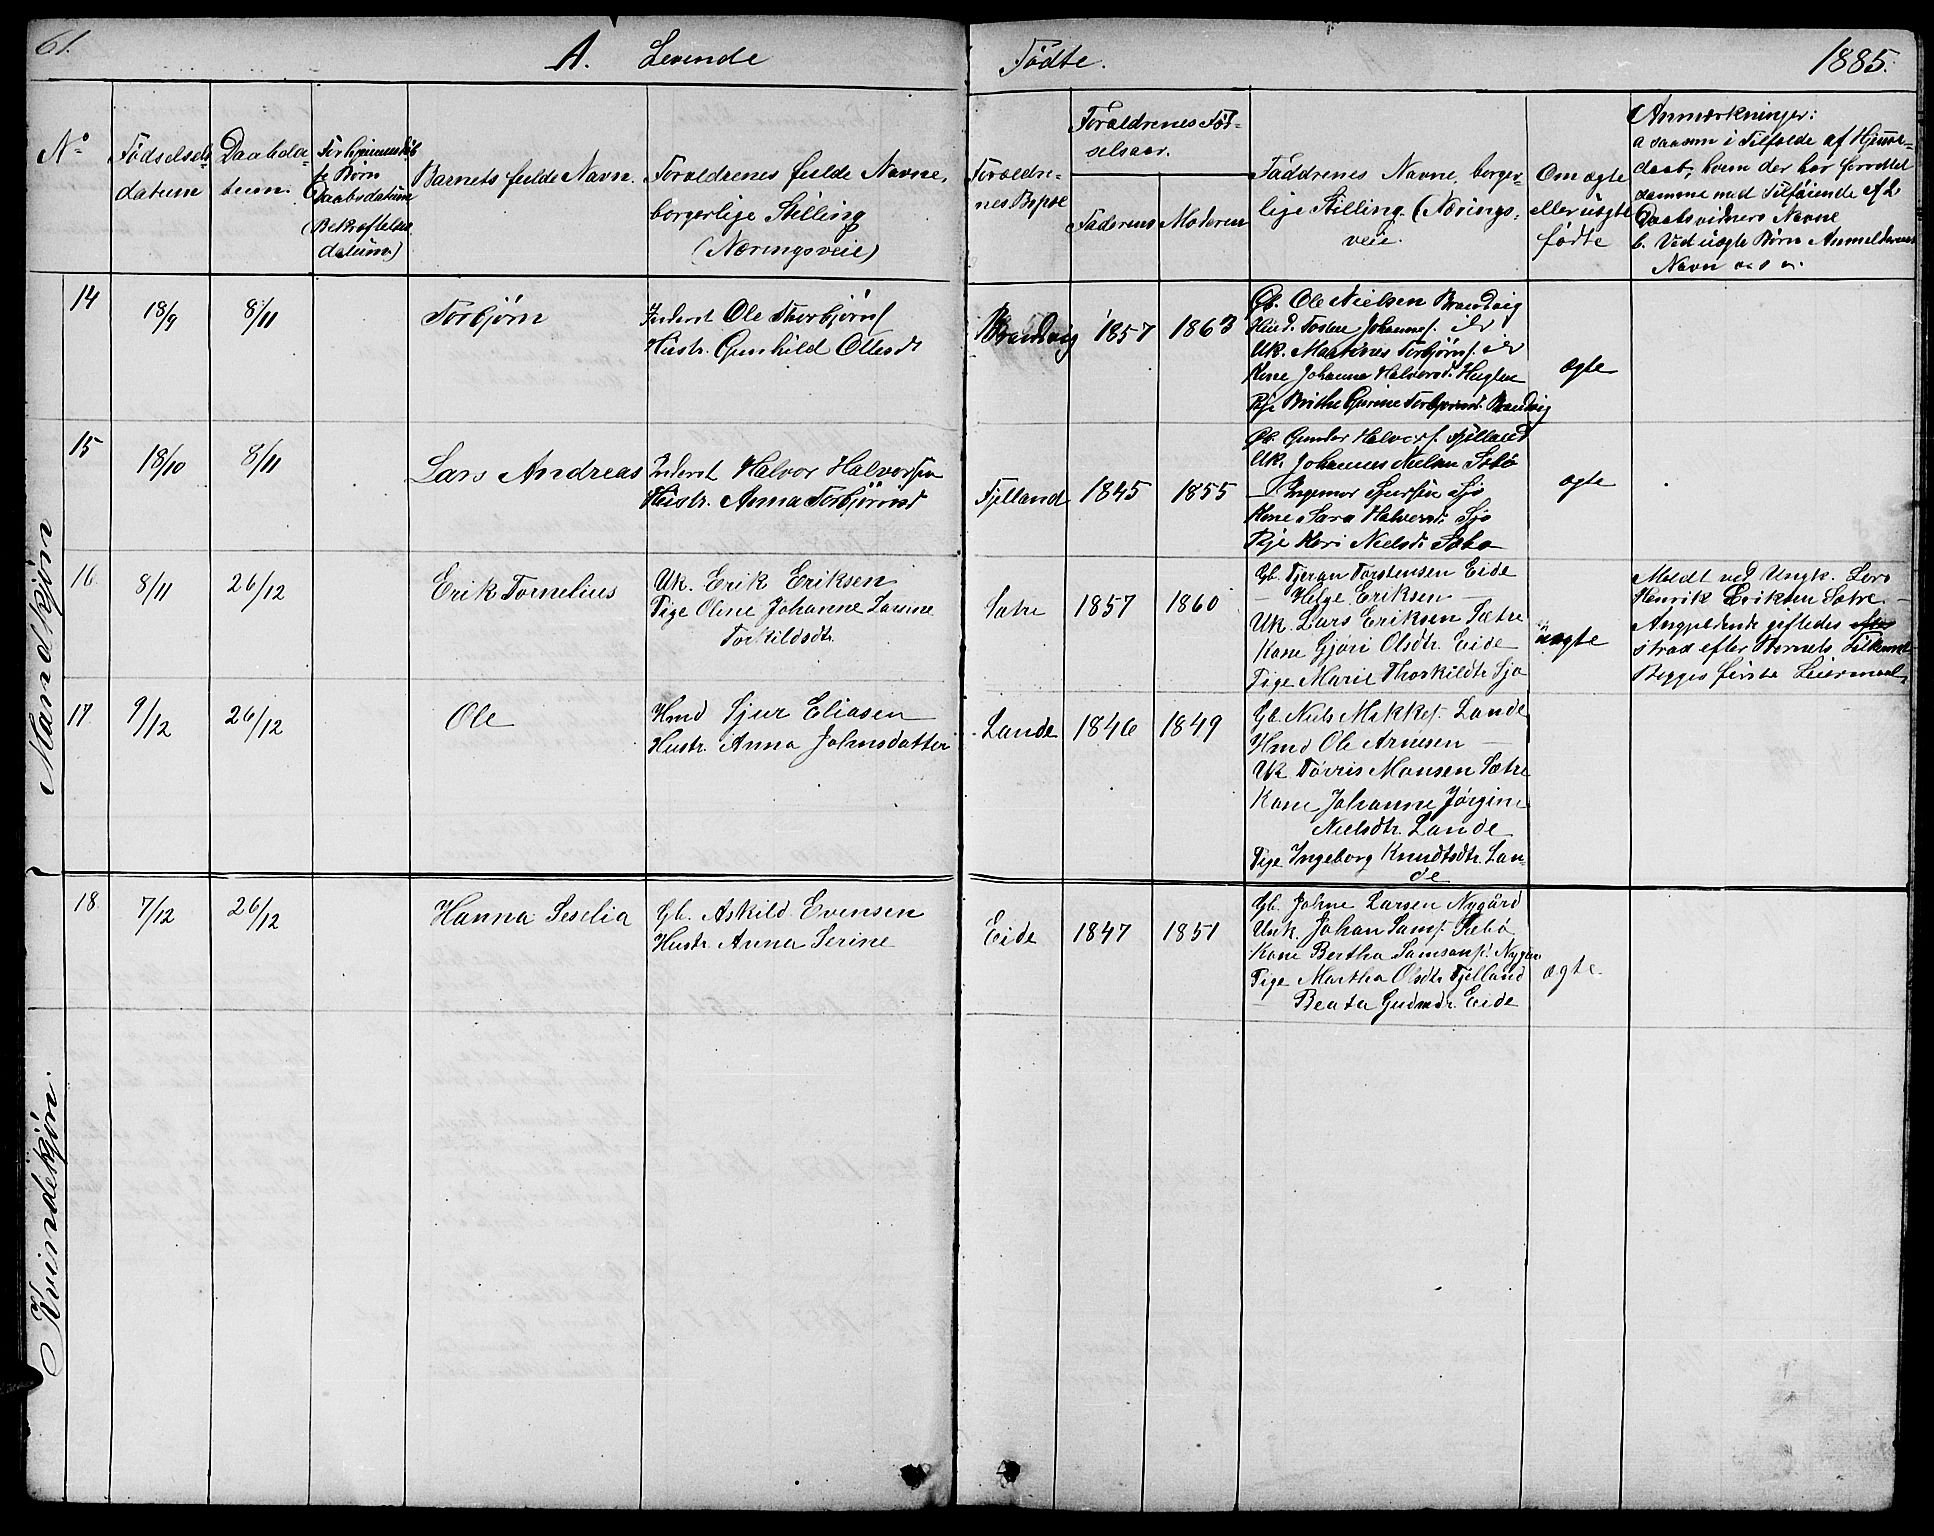 61.
A. Levende Fødte. 1885.
No
Fødselsdatum
Daabsdatum.
Daabsdatum
(Bekræftelsesdatum)
Barnets fulde Navn.
Forældrenes fulde Navne,
borgerlige Stilling
(Næringsveie)
Forældrenes Bopæl
Forældrenes Fødselsaar.
Faderens
Moderens
Faddrenes Navne, borgerlige Stilling. (Næringsveie.
Om ægte
eller uægte
fødte
Anmærkninger:
a saasom i Tilfælde af Hjemmedaab, hvem der har forrettet
samme med Tilføiende af 2
Daabsvidners Navne
b. Ved uægte Børn Anmelderens
Navn
Mandkjøn
14
18/9
8/11
Torbjørn
Inderst Ole Thorbjørns.
Hustr. Gunhild Ollesdt
Brandvig
1857
1863
Gb. Ole Nielsen Brandvig
Uk. Martines Torbjørns.
Kone Johanna Halvorsd. Huglen
Pige Brithe Gurine Torbjørnsd. Brandvig
ægte
15
18/10
8/11
Lars Andreas
Inderst Halvor Halvorsen
Hustr. Anna Torbjørnsd
Fjelland
1845
1855
Gb. Gunder Halvors. Fjelland
Uk. Johannes Nielsen Sebø
Kone Sara Halvorsd. Sjo
Pige Kari Nielsd. Sebø
ægte
16
8/11
26/12
Erik Tornelius
Uk. Erik Eriksen
Pige Oline Johanne Lamine
Torkildsdt.
Satre
1857
1860
Gb. Tjeran Torstensen Eide
— Helge Eriksen —
Uk. Lars Eriksen Sætre
Kone Gjøri Olsdtr. Eide
Tige Marie Thorkildtr Sjo
uægte
Meldt ved Ungk. Lars
Henrik Eriksen Satre. —
Angjeldende giftedes
strax efter Barnets Tilkomst
Begges første Leiermaal.
17
9/12
26/12
Ole
Hmd Sjur Eliasen
Hustr Anna Johnsdatter
Lande
1846
1849
Gb. Niels Mikkels. Lande
Hmd Ole Arnesen —
Uk. Tøvris Monsen Sætre
Kone Johanne Jørgine
Nielsdtr. Lande
Tige Ingeborg Knudtsdtr. Lande
Kvindekjøn.
18
7/12
26/12
Hanna Seselia
Gb. Askild Evensen
Hustr Anna Serine
Eide
1847
1851
Gb. Johne Larsen Nygård
Unk. Johan Sams. Sebø
Kone Bertha Samsons. Nygår
Tige Martha Olsdtr Fjelland
— Beata Gudmdr. Eide
ægte.